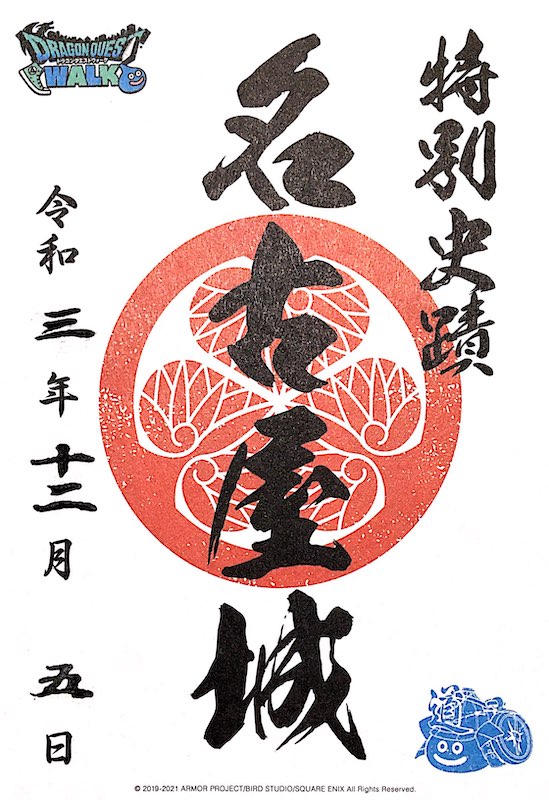 特別史蹟
名古屋城
令和三年十二月五日
DRAGON QUEST
ドラゴンクエストウォーク
WALK
道
© 2019-2021 ARMOR PROJECT/BIRD STUDIO/SQUARE ENIX All Rights Reserved.